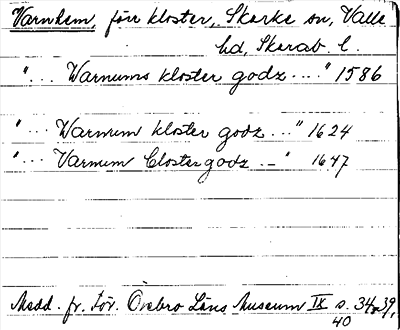 Varnhem, förr kloster, Skarke sn, Valle
hd, Skarab. l.
"... Warnums kloster godz ...." 1586
"... Warnum kloster godz ..." 1624
"... Varnum Closter godz .–" 1647
Medd. fr. För. Örebro Läns Museum IX s. 34, 39,
40